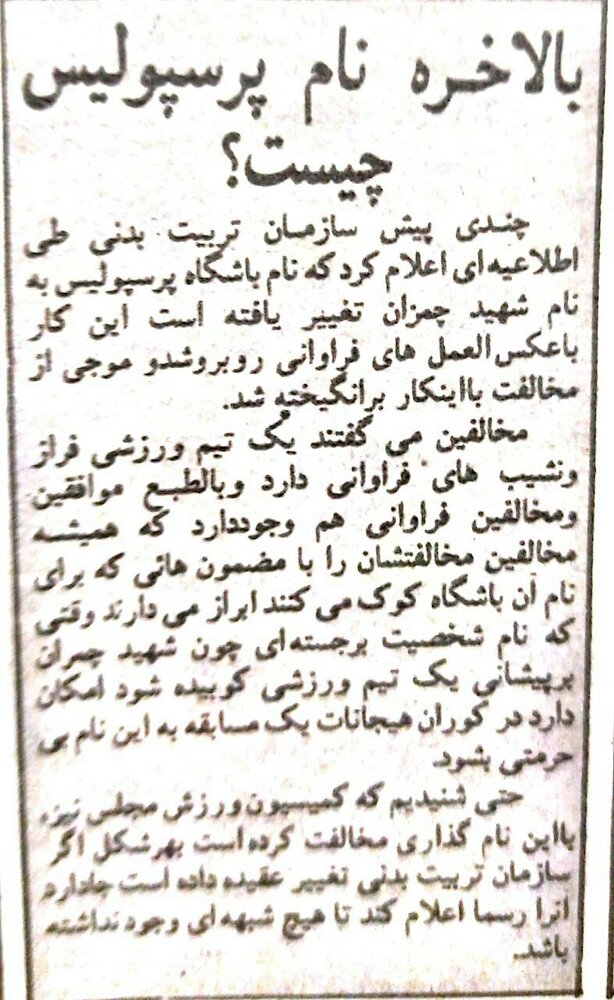 بالاخره نام پرسپولیس
چیست؟
چندی پیش سازمان تربیت بدنی طی
اطلاعیه‌ای اعلام کرد که نام باشگاه پرسپولیس به
نام شهید چمران تغییر یافته است این کار
باعکس‌العمل های فراوانی روبروشدو موجی از
مخالفت بااینکار برانگیخته شد.
مخالفین می گفتند یک تیم ورزشی فراز
ونشیب های فراوانی دارد وبالطبع موافقین
ومخالفین فراوانی هم وجوددارد که همیشه
مخالفین مخالفتشان را با مضمون هائی که برای
نام آن باشگاه کوک می کنند ابراز می دارند وقتی
که نام شخصیت برجسته‌ای چون شهید چمران
برپیشانی یک تیم ورزشی کوبیده شود امکان
دارد در کوران هیجانات یک مسابقه به این نام بی
حرمتی بشود.
حتی شنیدیم که کمیسیون ورزش مجلس نیز،
بااین نام گذاری مخالفت کرده است بهرشکل اگر
سازمان تربیت بدنی تغییر عقیده داده است جادارد
آنرا رسما اعلام کند تا هیچ شبهه ای وجود نداشته
باشد.